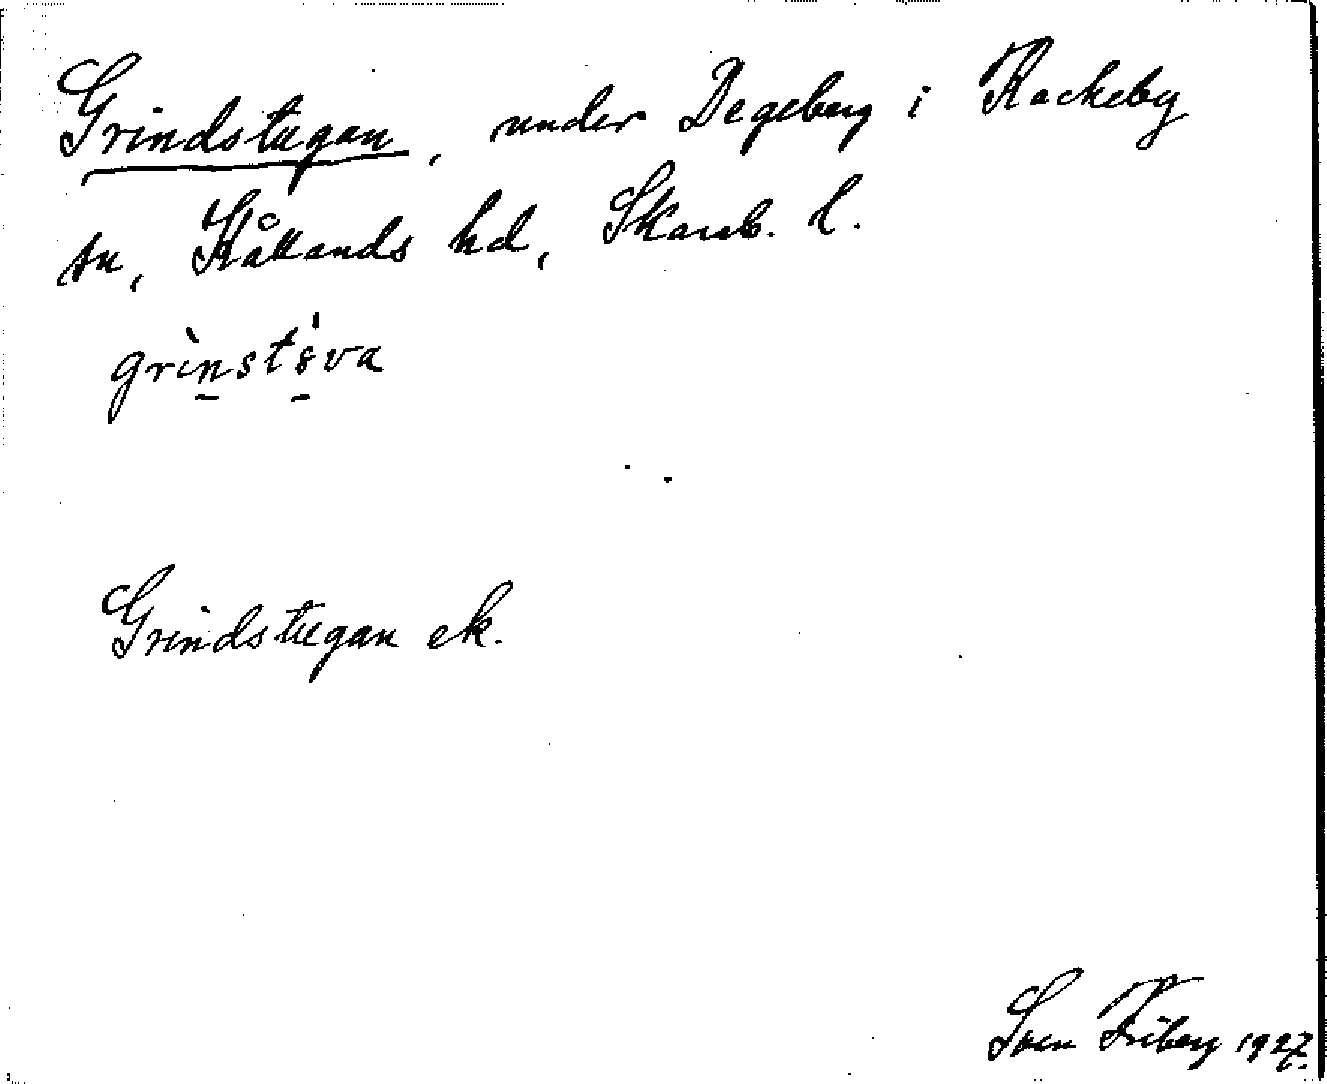 Grindstugan, under Degeberg i Rackeby
sn, Kållands hd, Skarab. l.
grinstɞva
Grindstugan ek.
Sven Friberg 1927.